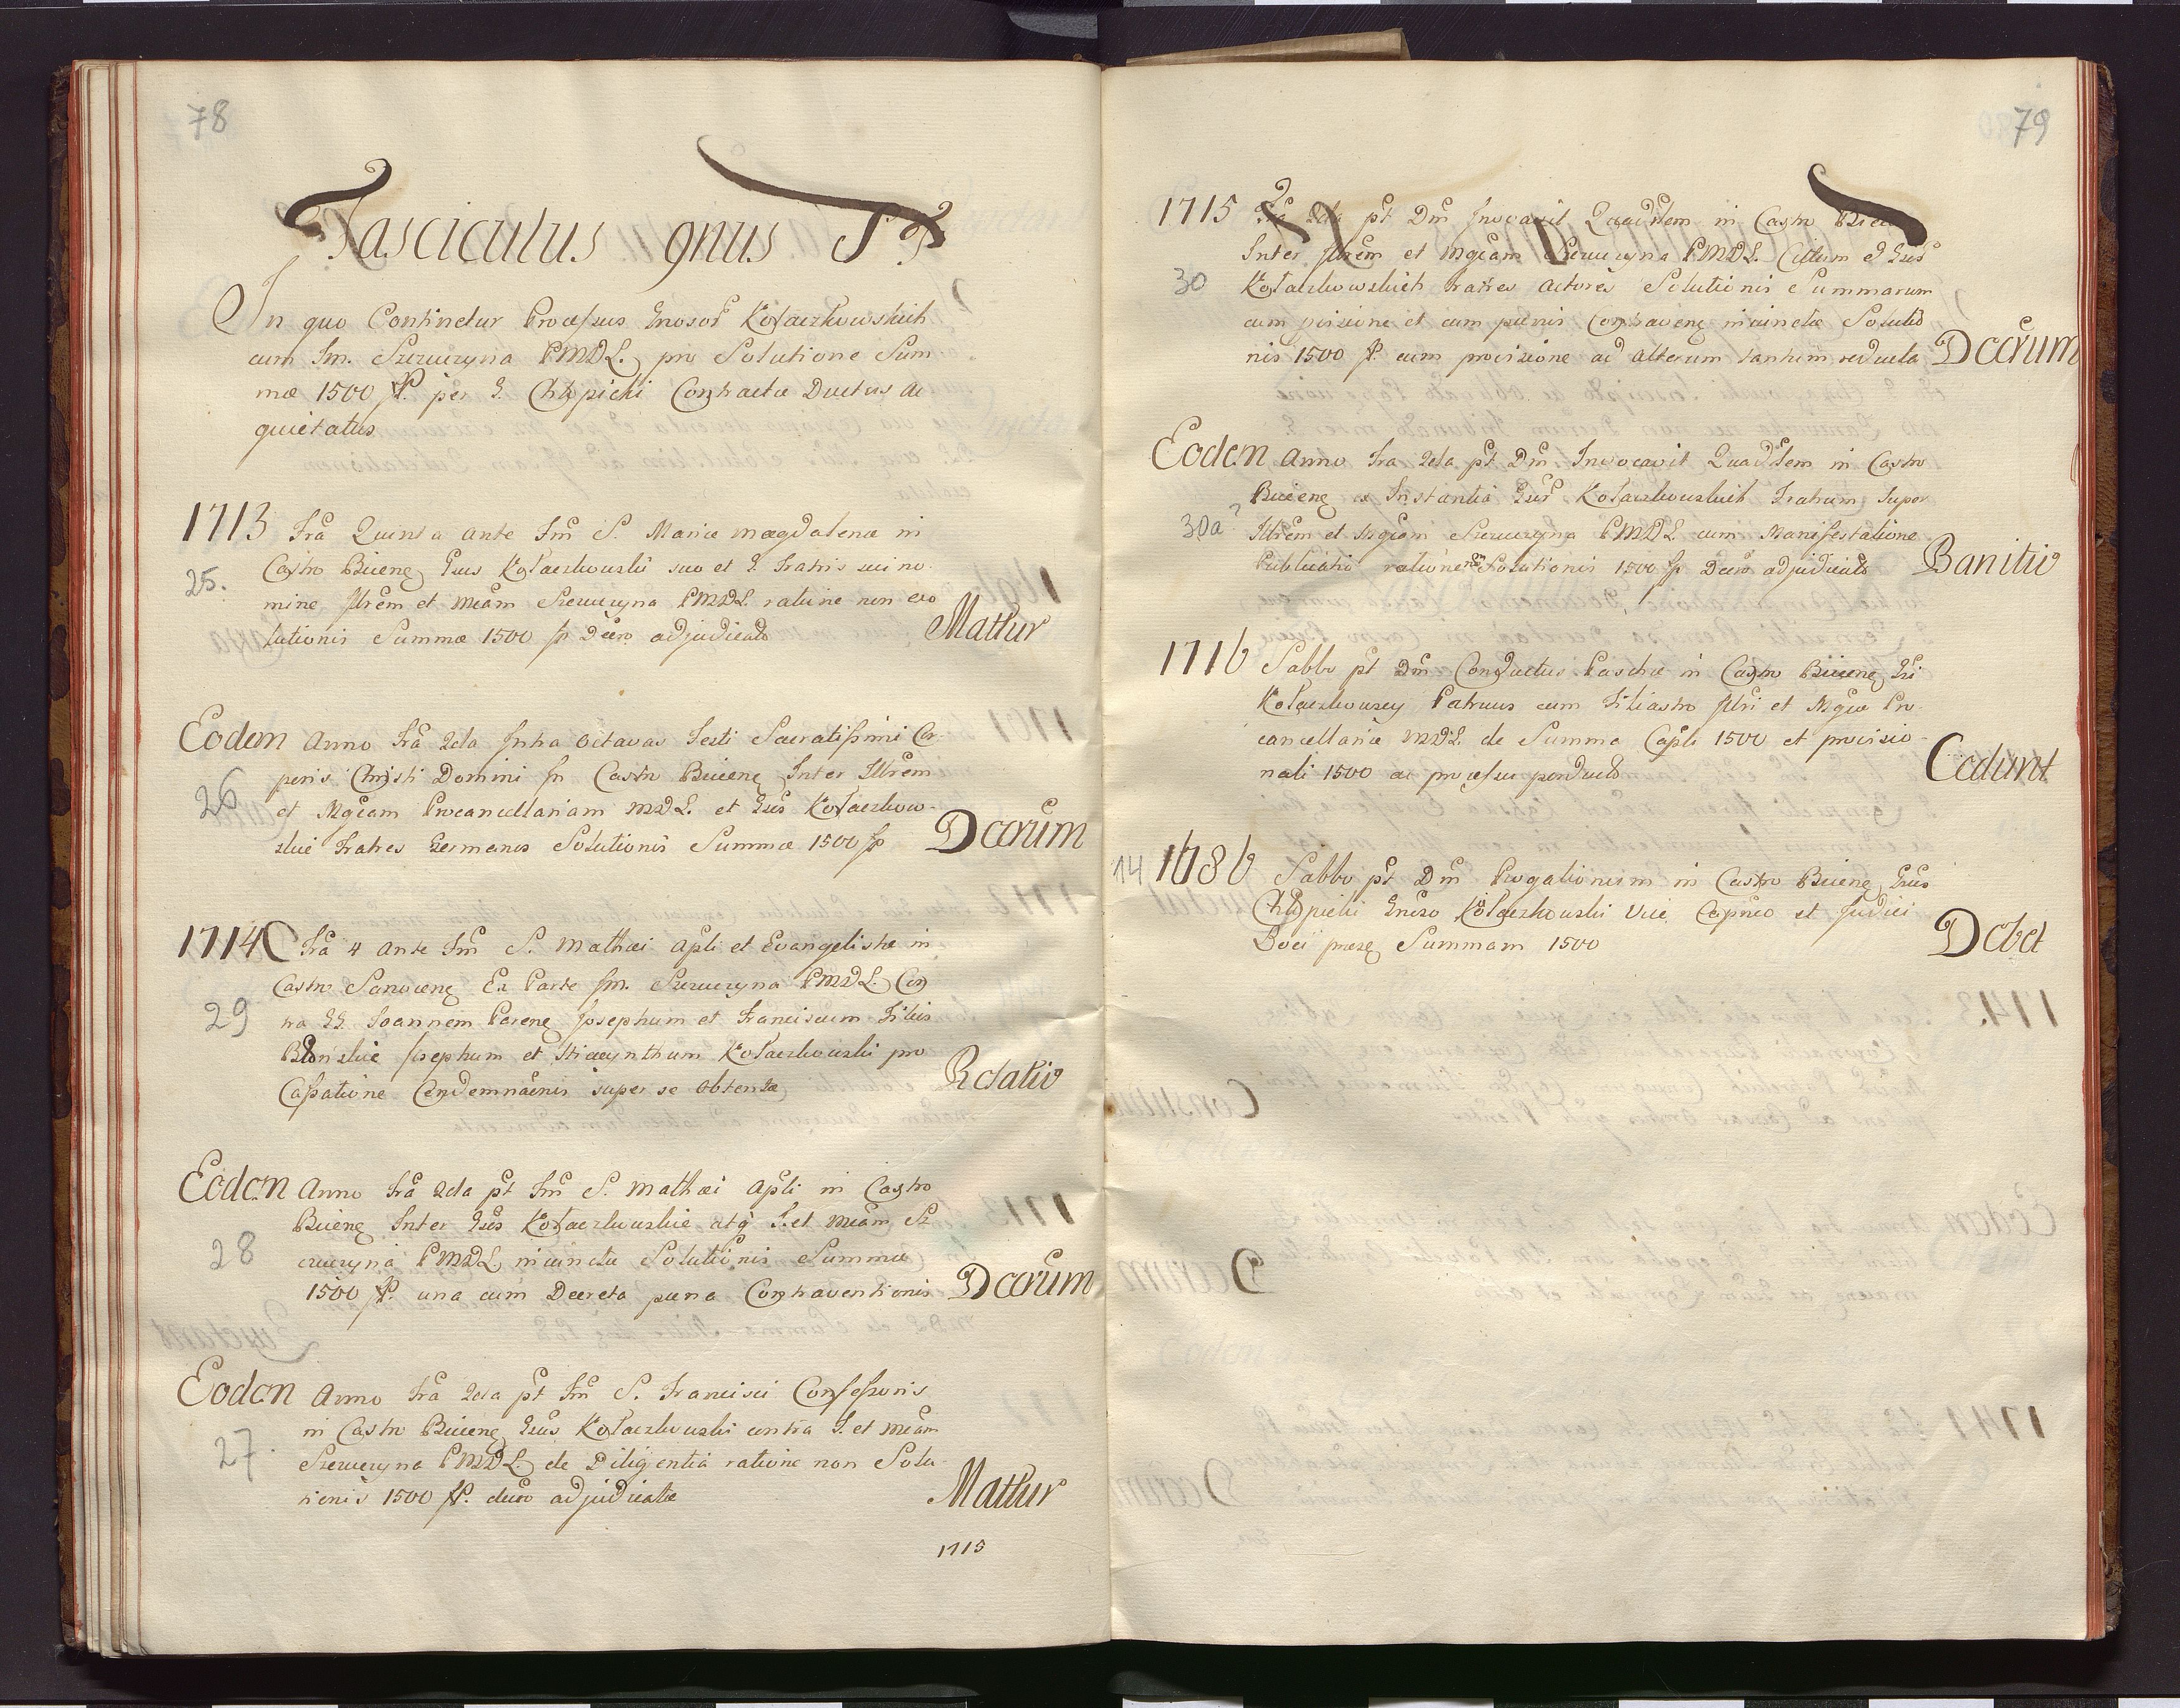 78
Fasciculus 9nus
In quo Continetur Processus Gnosor Kołaczkowskich
cum Im. Szczuczyna PMDL. pro Solutione Sum
mæ 1500 fp. per G. Chłopicki Contractæ Ductus ac
quietatus
1713 Fra Quinta ante Fm S. Mariæ Magdalenæ in
25.
Castro Biecene Gsus Kołaczkowski suo et G. Fratris sui no
mine Illrem et Mcam Szczuczyna PMDL. ratione non exo
lutionis Summæ 1500 fp Decro adjudicato
Mattur
Eodem Anno Fra 2da Infra Octavas Festi Sacratissimi Cor
26
poris Christi Domini In Castro Biecene Inter Illrem
et Mgcam Procancellariam MDL. et Gsos Kołaczkow-
skie Fratres Germanos Solutionis Summæ 1500 fp
Dcrum
1714 Fra 4 ante Fm S. Mathæi Apli et Evangelistæ in
29
Castro Sanocene Ex Parte Im. Szczuczyna PMDL. Con
tra GG. Joannem Parene Josephum et Franciscum Filios
Błonskie Josephum et Hiacynthum Kołaczkowski pro
Cassatione Condemnaenis super se obtentæ
Relatio
Eodem Anno Fra 2da pt Fm S. Mathæi Apli in Castro
28
Biecene Inter Gsos Kołaczkowskie atq I. et Mcam Sz
czuczyna PMDL. in Solutionis Summæ
1500 fp. una cum Decreta pæna Contraventionis
Dcrum
Eodem Anno Fra 2da pt Fm S. Francisci Confessoris
27.
in Castro Biecene Gsus Kołaczkowski contra I. et Mcam
Szczuczyna PMDL. de Diligentia ratione non Solu-
tionis 1500 fp. decro adjudicatæ
Mattur
1715
79
1715 Fra 2da pt Dm Invocavit Quadslem in Castro
30
Inter Illrem et Mgcam Szczuczyna PMDL. Citam et Gsos
Kołaczkowskich Fratres Actores Solutionis Summarum
cum provisione et cum pænis Contravene Solutio
nis 1500 fp. cum provisione ad alterum tantum reducta
Dcrum
Eodem Anno Fra 2da pt Dm Invocavit Quadslem in Castro
30a?
Biecene ex Instantia Gsor Kołaczkowskich Fratrum super
Illrem et Mgcam Szczuczyna PMDL. cum Manifestatione
Publicatio ratione non Solutionis 1500 fp Decro adjudicato
Banitio
1716 Sabbo pt Dm Conductus Paschæ in Castro Biecene Gsi
Kołaczkowscy Patruus cum Filiastro Illri et Mgcæ Pro-
cancellariæ MDL. de Summa Capli 1500 et provisio-
nali 1500 ac processu perducto
Cedunt
14
1686 Sabbo pt Dm Rogationum in Castro Biecene Gsus
Chłopicki Gneroso Kołaczkowski Vice Capneo et Judici
Bieci præse Summam 1500
Debet